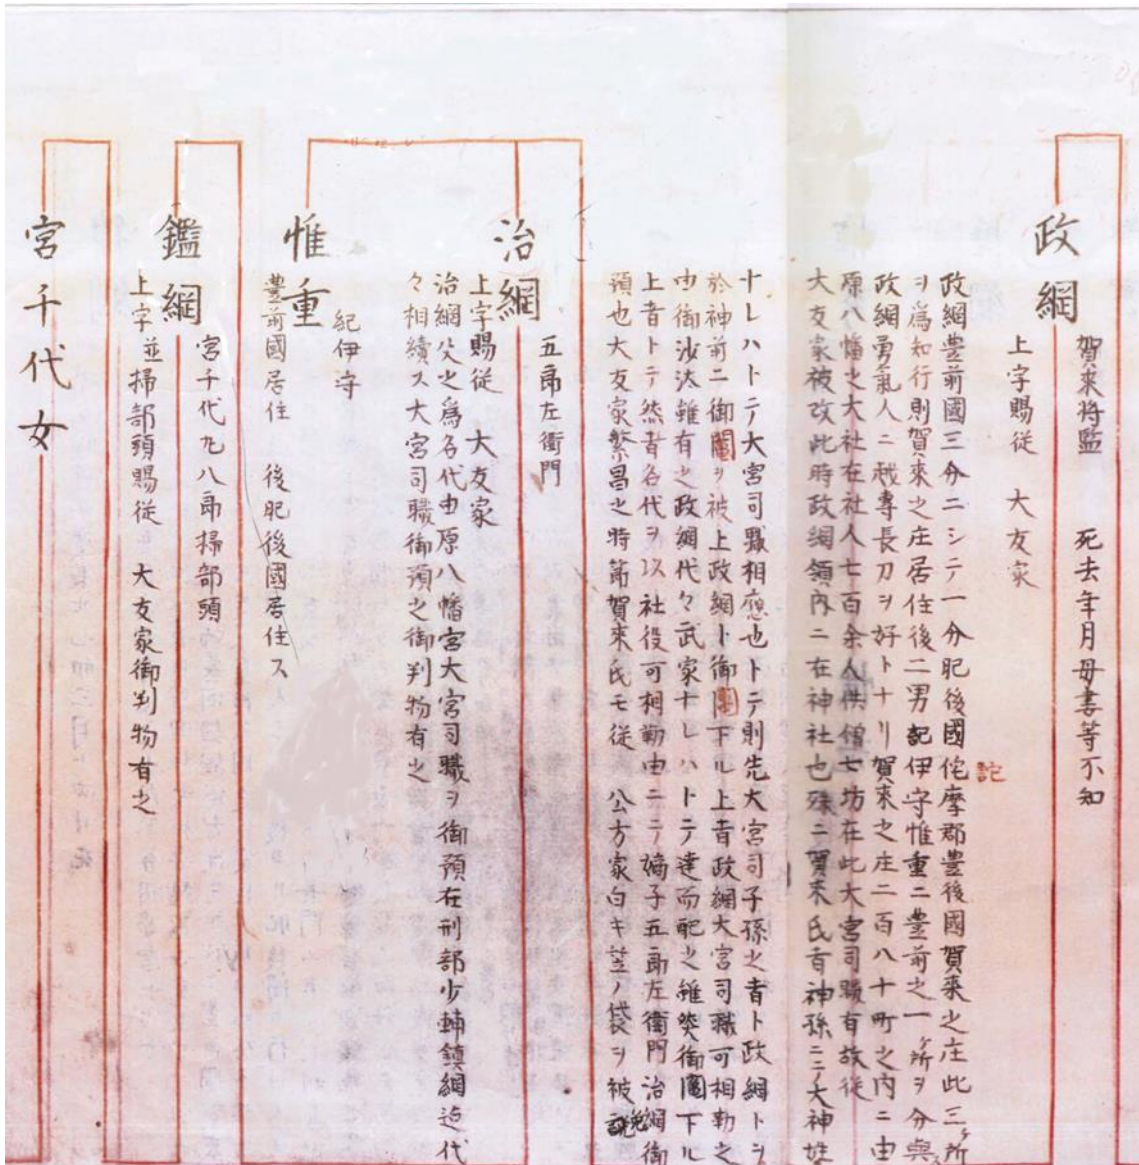 政綱
賀來将監　死去年月母妻等不知
上字賜従　大友家
政綱豊前國三分二シテ一分肥後國侘摩郡豊後國賀來之庄此三ヶ所
詑
ヲ為知行則賀來之庄居住後二男紀伊守惟重ニ豊前之一ヶ所ヲ分與
政綱勇氣人ニ越専長刀ヲ好トナリ賀來之庄二百八十町之内ニ由
原八幡之大社在社人七百余人供僧七坊在此大宮司職有故従
大友家被改此時政綱領内ニ在神社也殊ニ賀來氏者神孫ニテ大神姓
ナレハトテ大宮司職相應也トテ則先大宮司子孫之者ト政綱トヲ
於神前ニ御鬮ヲ被上政綱ト御鬮下ル上者政綱大宮司職可相勤之
由御沙汰雖有之政綱代々武家ナレハトテ達而配之雖然御鬮下ル
上者トテ然者名代ヲ以社役可相勤由ニテ嫡子五郎左衛門治綱御
預也大友家繁昌之時節賀來氏モ従　公方家白キ笠ノ袋ヲ被免
治綱
五郎左衛門
上字賜従　大友家
治綱父之為名代由原八幡宮大宮司職ヲ御預在刑部少輔鎮綱迄代
々相續ス大宮司職御預之御判物有之
惟重
紀伊守
豊前國居住　後肥後國居住ス
鑑綱
宮千代丸八郎掃部頭
上字並掃部頭賜従　大友家御判物有之
宮千代女